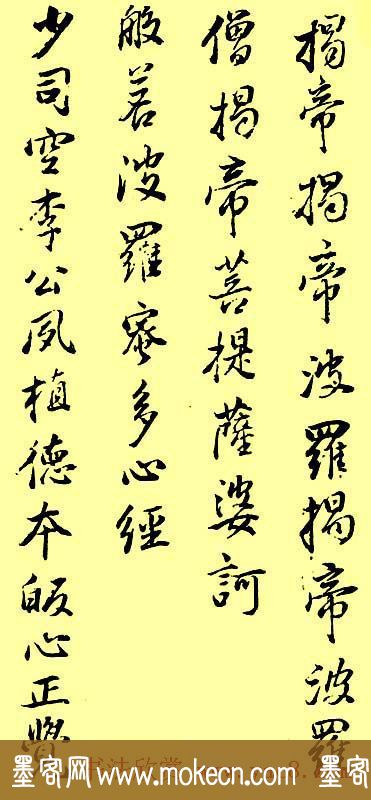 揭帝揭帝波羅揭帝波羅
僧揭帝菩提薩婆訶
般若波羅蜜多心經
少司空李公夙植德本皈心正覺
书法欣赏
墨客网 www.mokecn.com 墨客网